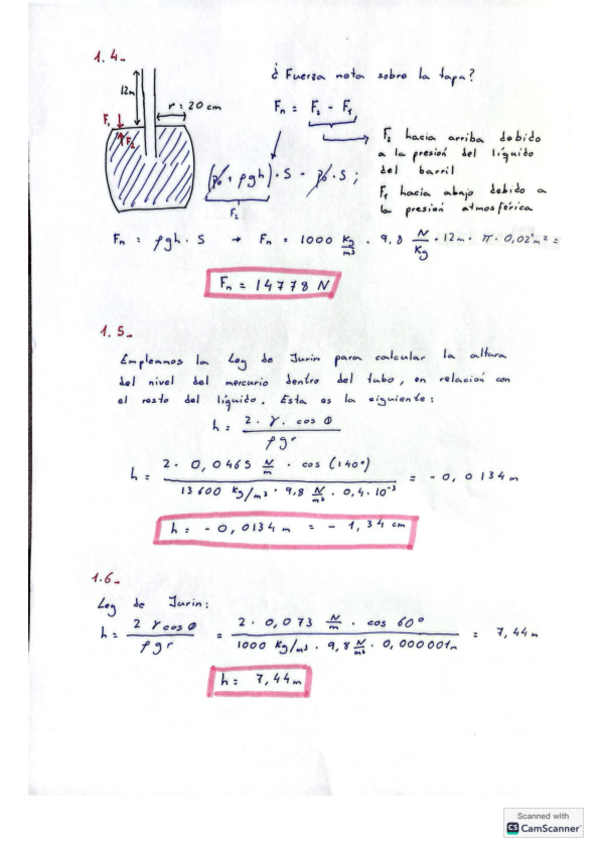 1.4-
12m
r = 20 cm
F₁
F₂
¿Fuerza neta sobre la tapa?
Fn = F₂ - F₁
F₂ hacia arriba debido
a la presión del líquido
del barril
F₁ hacia abajo debido a
la presión atmosférica
(p₀ + ρgh) · S - p₀ · S ;
F₂
Fn = ρgh · S → Fn = 1000 Kg/m³ · 9,8 N/Kg · 12m · π · 0,02² m² =
Fn = 14778 N
1.5-
Empleamos la Ley de Jurin para calcular la altura
del nivel del mercurio dentro del tubo, en relación con
el resto del líquido. Esta es la siguiente:
h = 2 · γ · cos θ / ρgr
h = 2 · 0,0465 N/m · cos (140°) / 13600 Kg/m³ · 9,8 N/m³ · 0,4 · 10⁻³ = -0,0134 m
h = -0,0134 m = -1,34 cm
1.6-
Ley de Jurin:
h = 2 γ cos θ / ρgr = 2 · 0,073 N/m · cos 60° / 1000 Kg/m³ · 9,8 N/m³ · 0,000001m = 7,44m
h = 7,44m
Scanned with
CS CamScanner